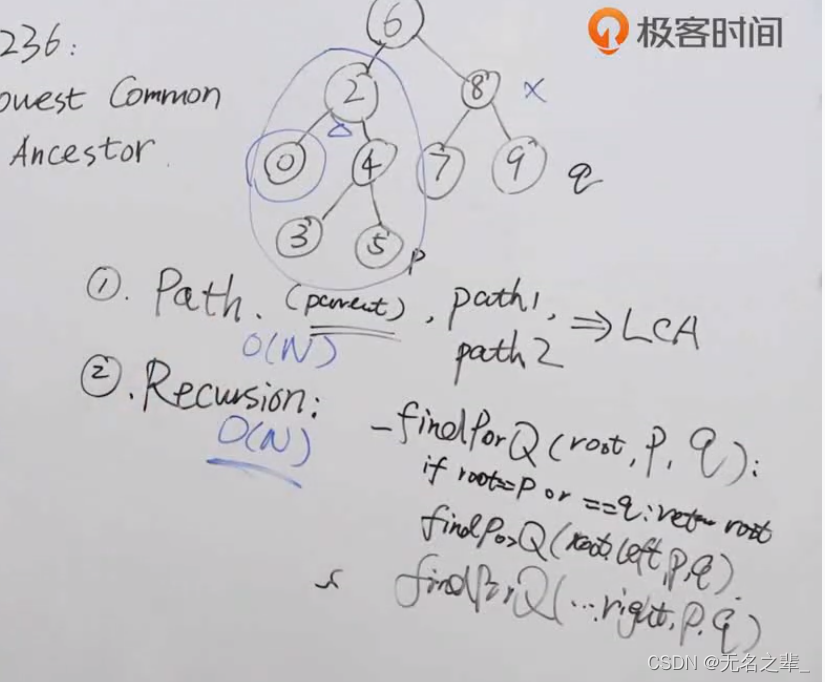 极客时间
236:
owest Common
Ancestor.
6
2
8
x
0
4
7
9
q
3
5
p
①. Path. (parent), path1,
path2 ⇒ LCA
O(N)
②. Recursion:
O(N)
_findPorQ(root, P, q):
if root==P or ==q: return root
findPorQ(root.left, p, q)
findPorQ(...right, p, q)
CSDN @无名之辈_